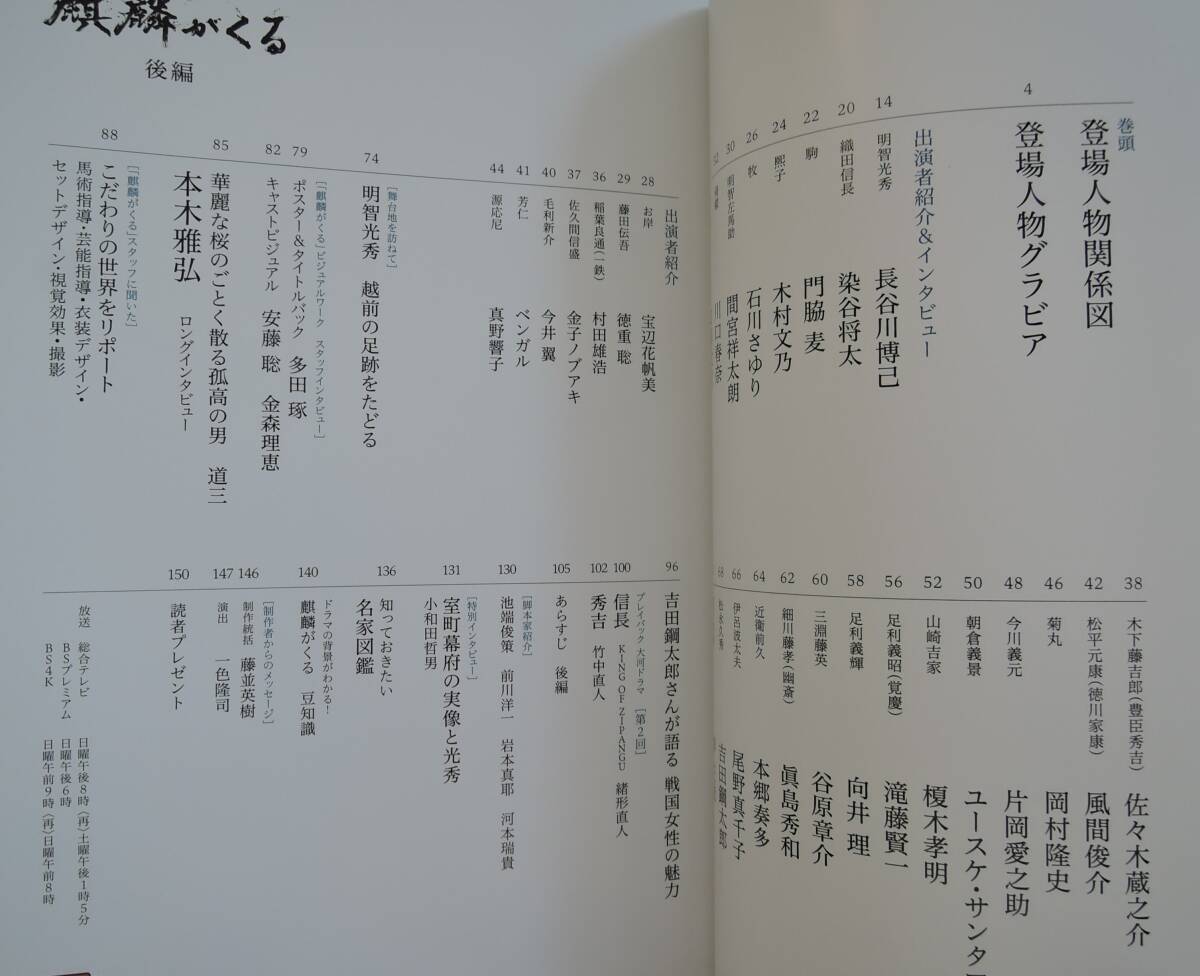 巻頭
登場人物関係図
4
登場人物グラビア
出演者紹介&インタビュー
14 明智光秀 長谷川博己
20 織田信長 染谷将太
22 駒 門脇 麦
24 熙子 木村文乃
26 牧 石川さゆり
30 明智左馬助 間宮祥太朗
32 川口春奈
38 木下藤吉郎(豊臣秀吉) 佐々木蔵之介
42 松平元康(徳川家康) 風間俊介
46 菊丸 岡村隆史
48 今川義元 片岡愛之助
50 朝倉義景 ユースケ・サンタ
52 山崎吉家 榎木孝明
56 足利義昭(覚慶) 滝藤賢一
58 足利義輝 向井 理
60 三淵藤英 谷原章介
62 細川藤孝(幽斎) 眞島秀和
64 近衛前久 本郷奏多
66 伊呂波太夫 尾野真千子
68 松永久秀 吉田鋼太郎
麒麟がくる
後編
出演者紹介
28 お岸 宝辺花帆美
29 藤田伝吾 徳重 聡
36 稲葉良通(一鉄) 村田雄浩
37 佐久間信盛 金子ノブアキ
40 毛利新介 今井 翼
41 芳仁 ベンガル
44 源応尼 真野響子
[舞台地を訪ねて]
74 明智光秀 越前の足跡をたどる
[「麒麟がくる」ビジュアルワーク スタッフインタビュー]
79 ポスター&タイトルバック 多田 琢
82 キャストビジュアル 安藤 聡 金森理恵
85 華麗な桜のごとく散る孤高の男 道三
本木雅弘 ロングインタビュー
[「麒麟がくる」スタッフに聞いた]
88 こだわりの世界をリポート
馬術指導・芸能指導・衣装デザイン・
セットデザイン・視覚効果・撮影
96 吉田鋼太郎さんが語る 戦国女性の魅力
プレイバック大河ドラマ [第2回]
100 信長 KING OF ZIPANGU 緒形直人
102 秀吉 竹中直人
105 あらすじ 後編
[脚本家紹介]
130 池端俊策 前川洋一 岩本真耶 河本瑞貴
[特別インタビュー]
131 室町幕府の実像と光秀
小和田哲男
136 知っておきたい
名家図鑑
ドラマの背景がわかる!
140 麒麟がくる 豆知識
[制作者からのメッセージ]
146 制作統括 藤並英樹
147 演出 一色隆司
150 読者プレゼント
放送 総合テレビ 日曜午後8時 (再)土曜午後1時5分
BSプレミアム 日曜午後6時
BS4K 日曜午前9時 (再)日曜午前8時